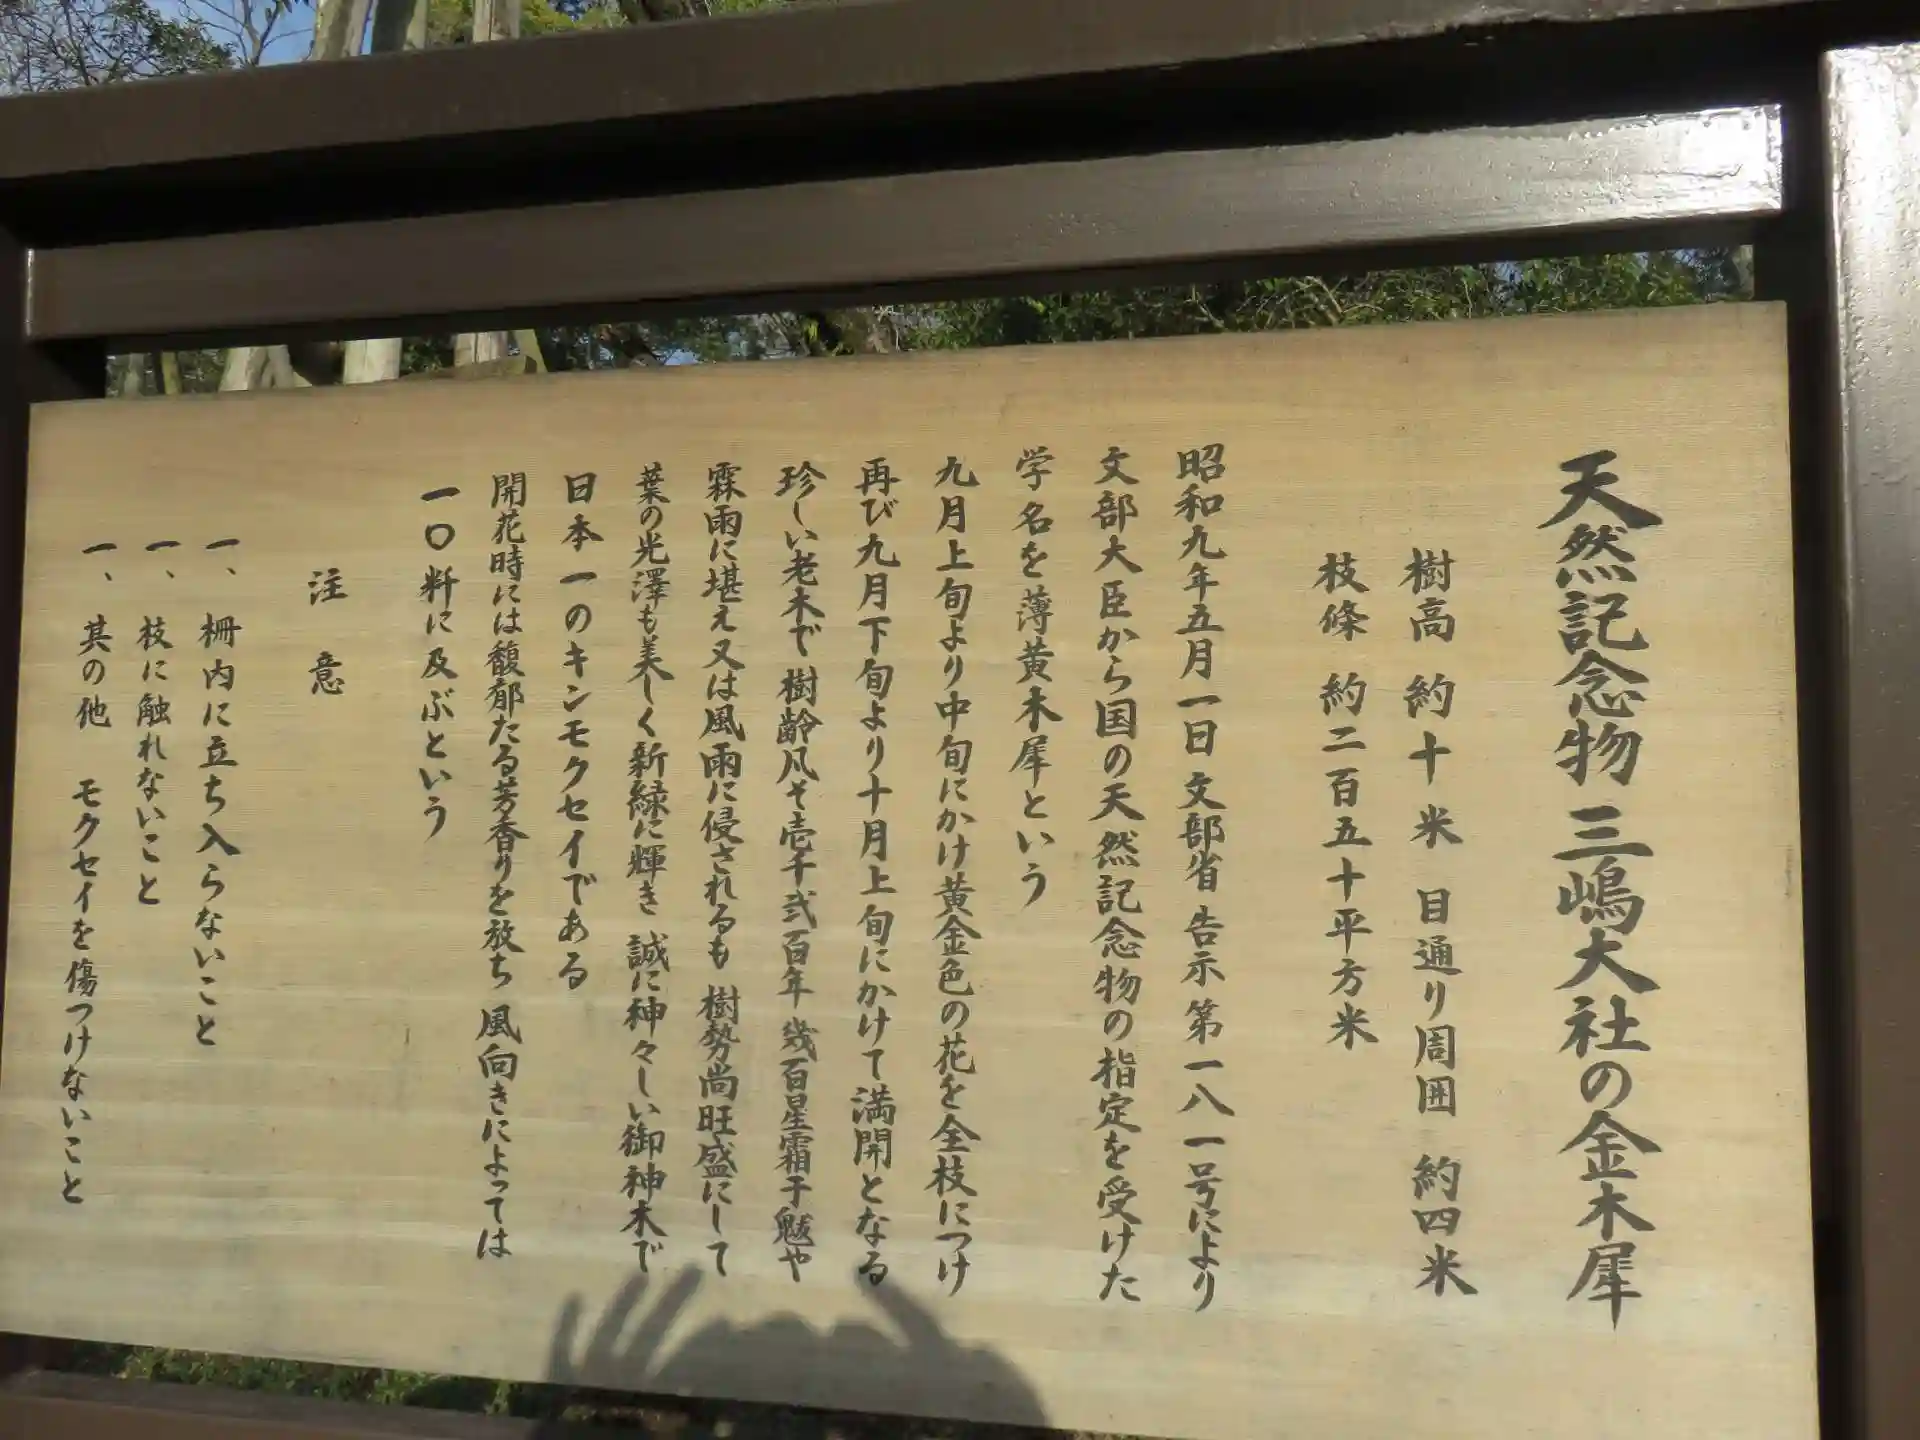 天然記念物 三嶋大社の金木犀
樹高 約十米 目通り周囲 約四米
枝條 約二百五十平方米
昭和九年五月一日 文部省 告示 第一八一号により
文部大臣から国の天然記念物の指定を受けた
学名を薄黄木犀という
九月上旬より中旬にかけ黄金色の花を全枝につけ
再び九月下旬より十月上旬にかけて満開となる
珍しい老木で樹齢凡そ壱千弐百年 幾百星霜干魃や
霖雨に堪え又は風雨に侵されるも 樹勢尚旺盛にして
葉の光澤も美しく新緑に輝き 誠に神々しい御神木で
日本一のキンモクセイである
開花時には馥郁たる芳香りを放ち 風向きによっては
一〇粁に及ぶという
注 意
一、 柵内に立ち入らないこと
一、 枝に触れないこと
一、 其の他 モクセイを傷つけないこと